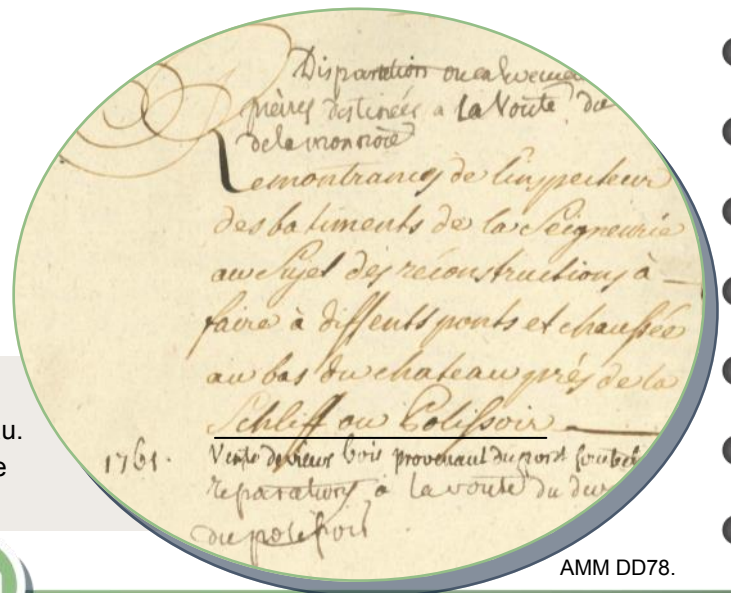 Disparition ou enlevement
pieres destinées a La Voute du
de la monnoie
Remontrances de l'inspecteur
des batiments de la Seigneurie
au Sujet des réconstructions à
faire à diffents ponts et chaussée
au bas du chateau près de la
Schliff ou Polissoir
1761. Vente de vieux bois provenant du pont
reparations a la voute du
du polissoir
u.
e
AMM DD78.